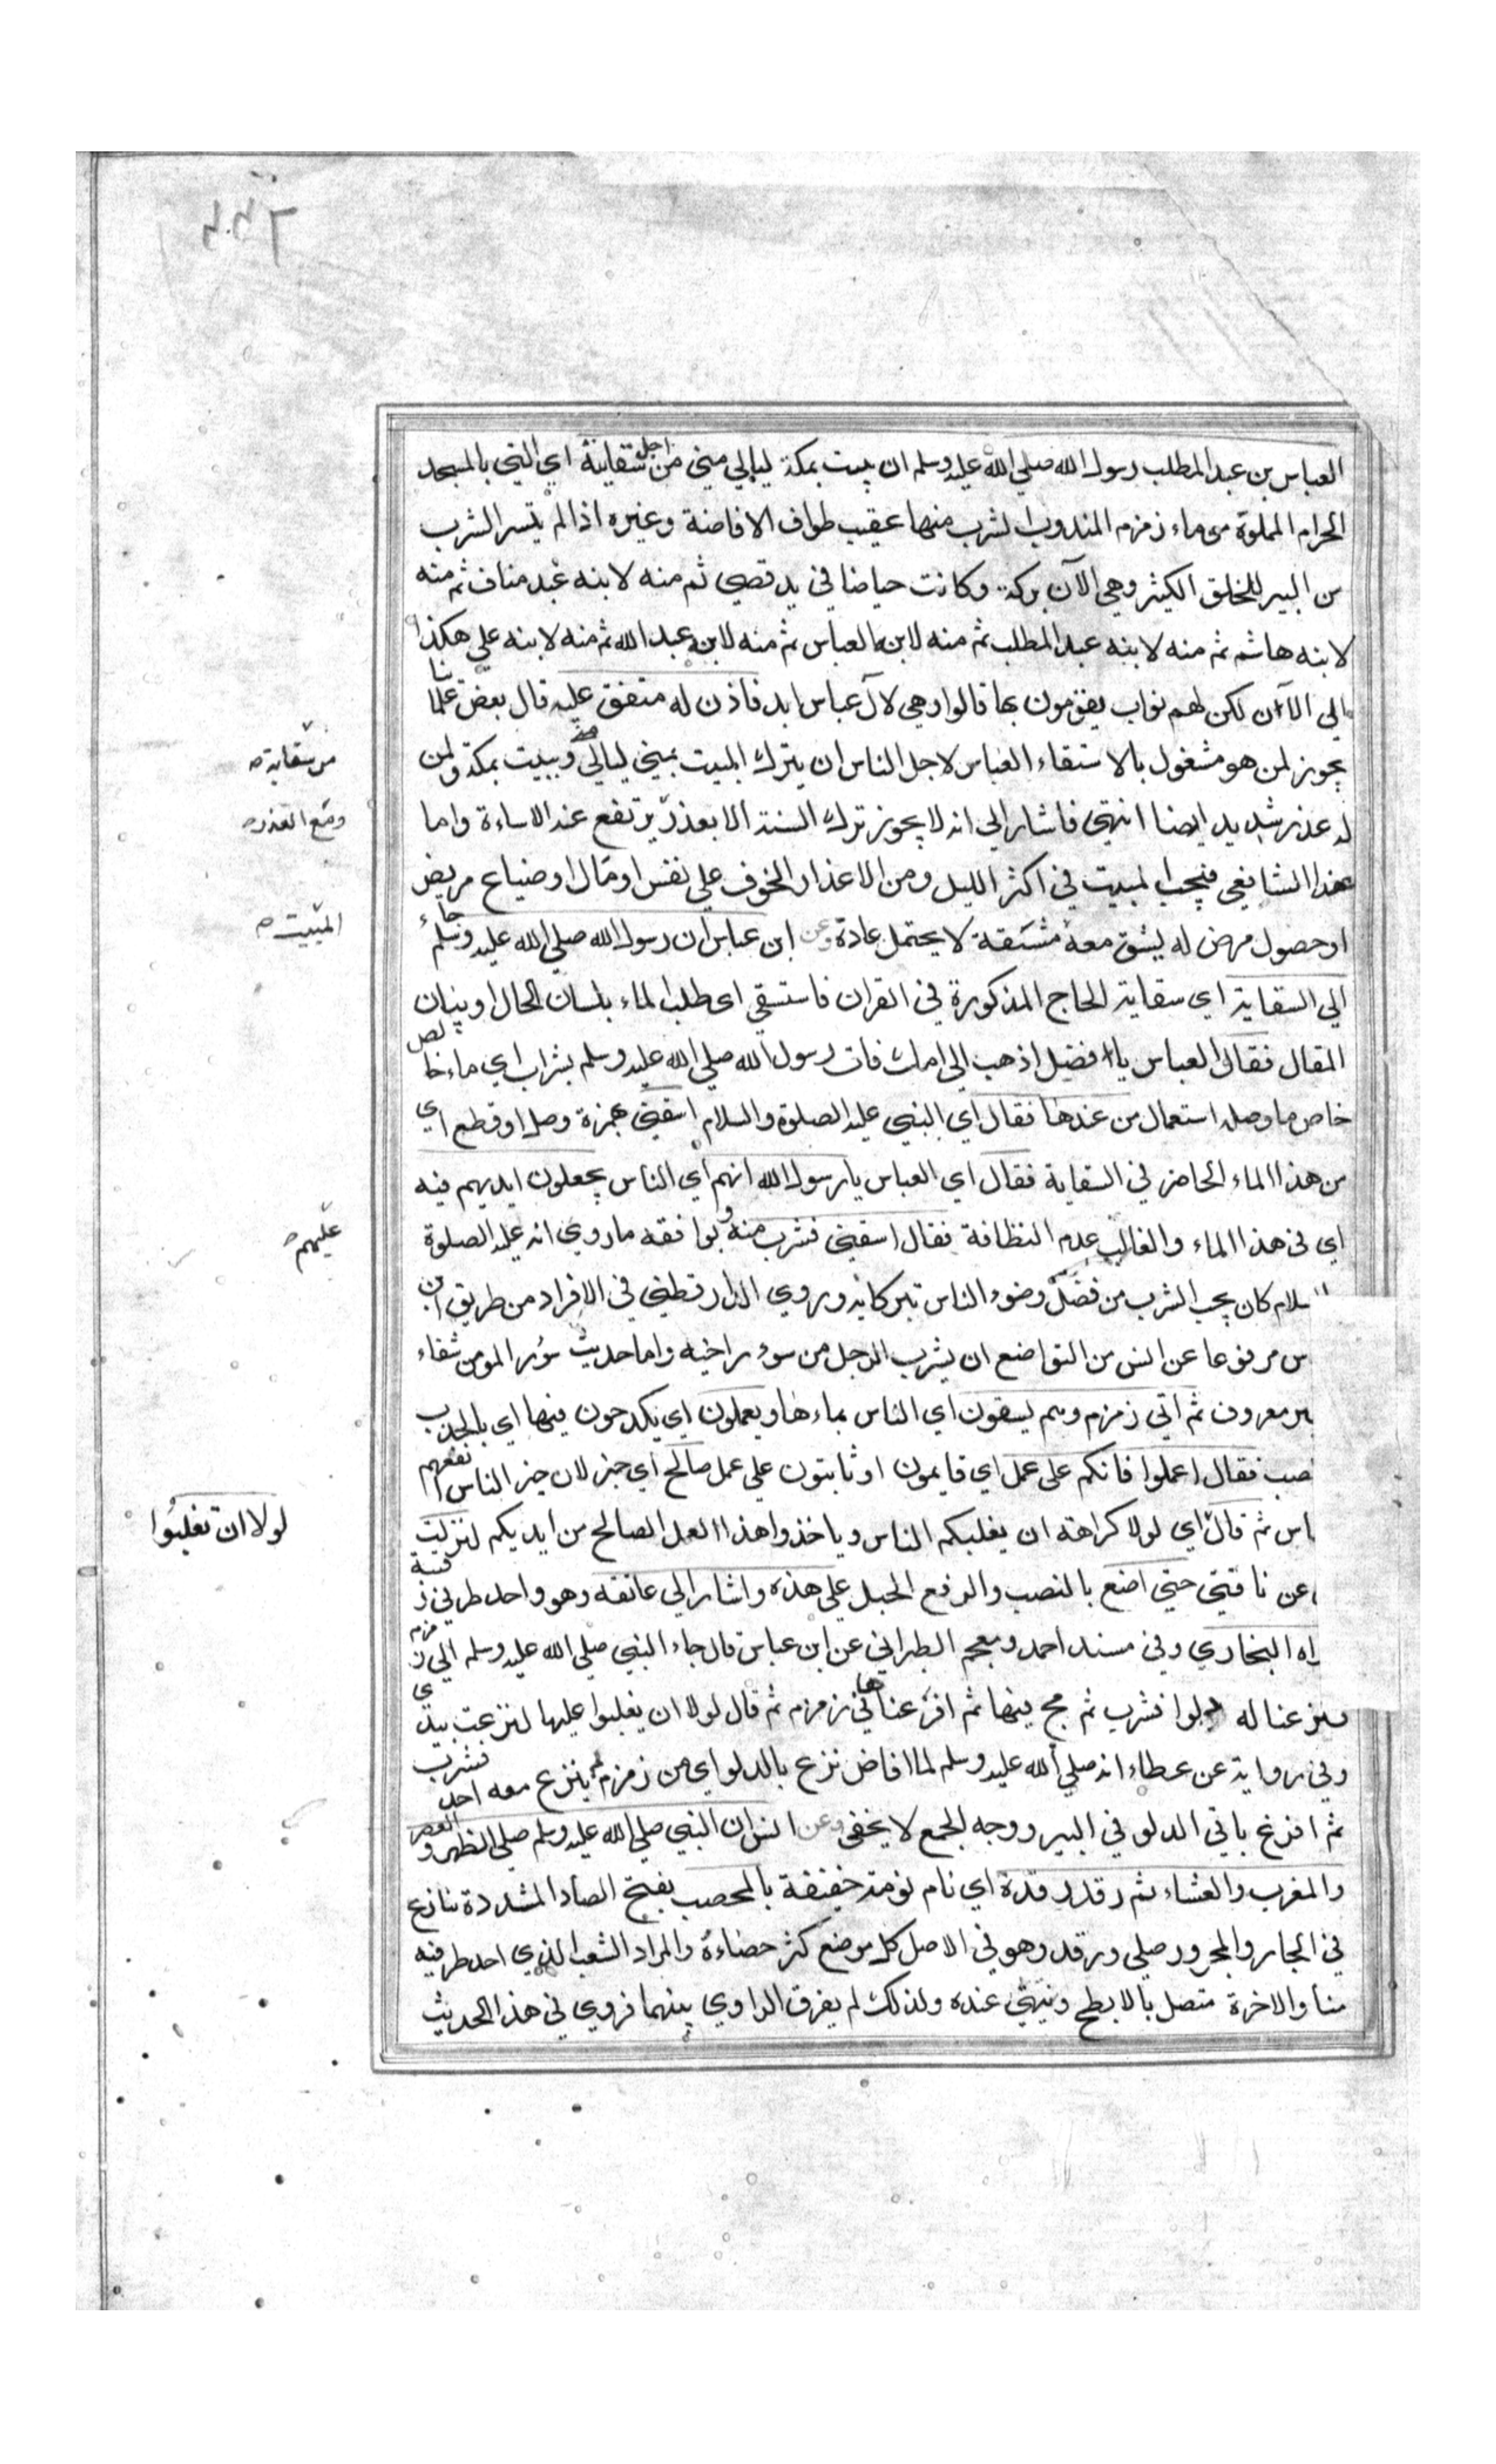 العباس بن عبد المطلب رسول الله صلي الله عليه وسلم ان يبيت بمكة ليالي مني من اجل سقايته اي التي بالمسجد
الحرام المملوة من ماء زمزم المندوب الشرب منها عقيب طواف الافاضة وغيره اذا لم يتيسر الشرب
من البير للخلق الكثير وهي الآن بركة وكانت حياضا في يد قصي ثم منه لابنه عبد مناف ثم منه
لابنه هاشم ثم منه لابنه عبد المطلب ثم منه لابنه العباس ثم منه لابنه عبد الله ثم منه لابنه علي هكذا
الي الآن لكن لهم نواب يقومون بها قالوا وهي لآل عباس ابد فاذن له متفق عليه قال بعض علمائنا
يجوز لمن هو مشغول بالاستقاء العباس لاجل الناس ان يترك المبيت بمني ليالي ويبيت بمكة ولمن
من سقاية
له عذر شديد ايضا انتهي فاشار الي انه لا يجوز ترك السنة الا بعذر يرتفع عند الاساءة واما
ومع العذر
عند الشافعي فيجب المبيت في اكثر الليل ومن الاعذار الخوف علي نفس او مال او ضياع مريض
المبيت
او حصول مرض له يشق معه مشقة لا يحتمل عادة وعن ابن عباس ان رسول الله صلي الله عليه وسلم جاء
الي السقاية اي سقاية الحاج المذكورة في القران فاستسقي اي طلب الماء بلسان الحال او ببيان
المقال فقال العباس يا فضيل اذهب الي امك فات رسول الله صلي الله عليه وسلم بشراب اي ماء خالص
خاص ما وصله استعمال من عندها فقال اي النبي عليه الصلوة والسلام اسقني بهمزة وصل او قطع اي
من هذا الماء الحاضر في السقاية فقال اي العباس يا رسول الله انهم اي الناس يجعلون ايديهم فيه
اي في هذا الماء والغالب عدم النظافة فقال اسقني فشرب منه ويوافقه ما روي انه عليه الصلوة
عليهم
السلام كان يحب الشرب من فضل وضوء الناس تبركا به وروي الدارقطني في الافراد من طريق ابن
س مرفوعا عن انس من التواضع ان يشرب الرجل من سؤر اخيه واما حديث سؤر المومن شفاء
ير معروف ثم اتي زمزم وهم يسقون اي الناس بماءها ويعملون اي يكدحون فيها اي بالجذب
صب فقال اعملوا فانكم علي عمل اي قايمون او ثابتون علي عمل صالح اي خير لان خير الناس انفعهم
اس ثم قال اي لولا كراهة ان يغلبكم الناس وياخذوا هذا العمل الصالح من ايديكم لنزلت
لولا ان تغلبوا
عن ناقتي حتي اضع بالنصب والرفع الحبل علي هذه واشار الي عاتقه وهو واحد طرفي رقبته
راه البخاري وفي مسند احمد ومعجم الطبراني عن ابن عباس قال جاء النبي صلي الله عليه وسلم الي زمزم
فنزعنا له دلوا فشرب ثم مج فيها ثم افرغناها في زمزم ثم قال لولا ان يغلبوا عليها لنزعت بيدي
وفي رواية عن عطاء انه صلي الله عليه وسلم لما افاض نزع بالدلو اي من زمزم لم ينزع معه احد فشرب
ثم افرغ باقي الدلو في البير ووجه الجمع لا يخفي وعن انس ان النبي صلي الله عليه وسلم صلي الظهر والعصر
والمغرب والعشاء ثم رقد رقدة اي نام نومة خفيفة بالمحصب بفتح الصاد المشددة تنازع
في الجار والمجرور صلي ورقد وهو في الاصل كل موضع كثر حصاءه والمراد الشعب الذي احد طرفيه
منا والاخرة متصل بالابطح وينتهي عنده ولذلك لم يفرق الراوي بينهما فروي في هذا الحديث